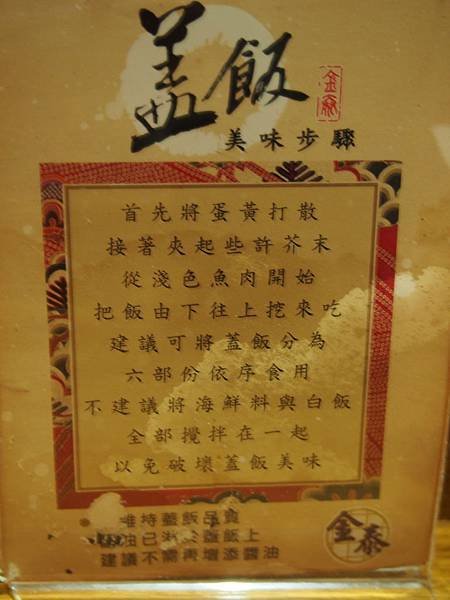 蓋飯
金泰
美味步驟
首先將蛋黃打散
接著夾起些許芥末
從淺色魚肉開始
把飯由下往上挖來吃
建議可將蓋飯分為
六部份依序食用
不建議將海鮮料與白飯
全部攪拌在一起
以免破壞蓋飯美味
維持蓋飯品質
油已淋於蓋飯上
建議不需再增添醬油
金泰